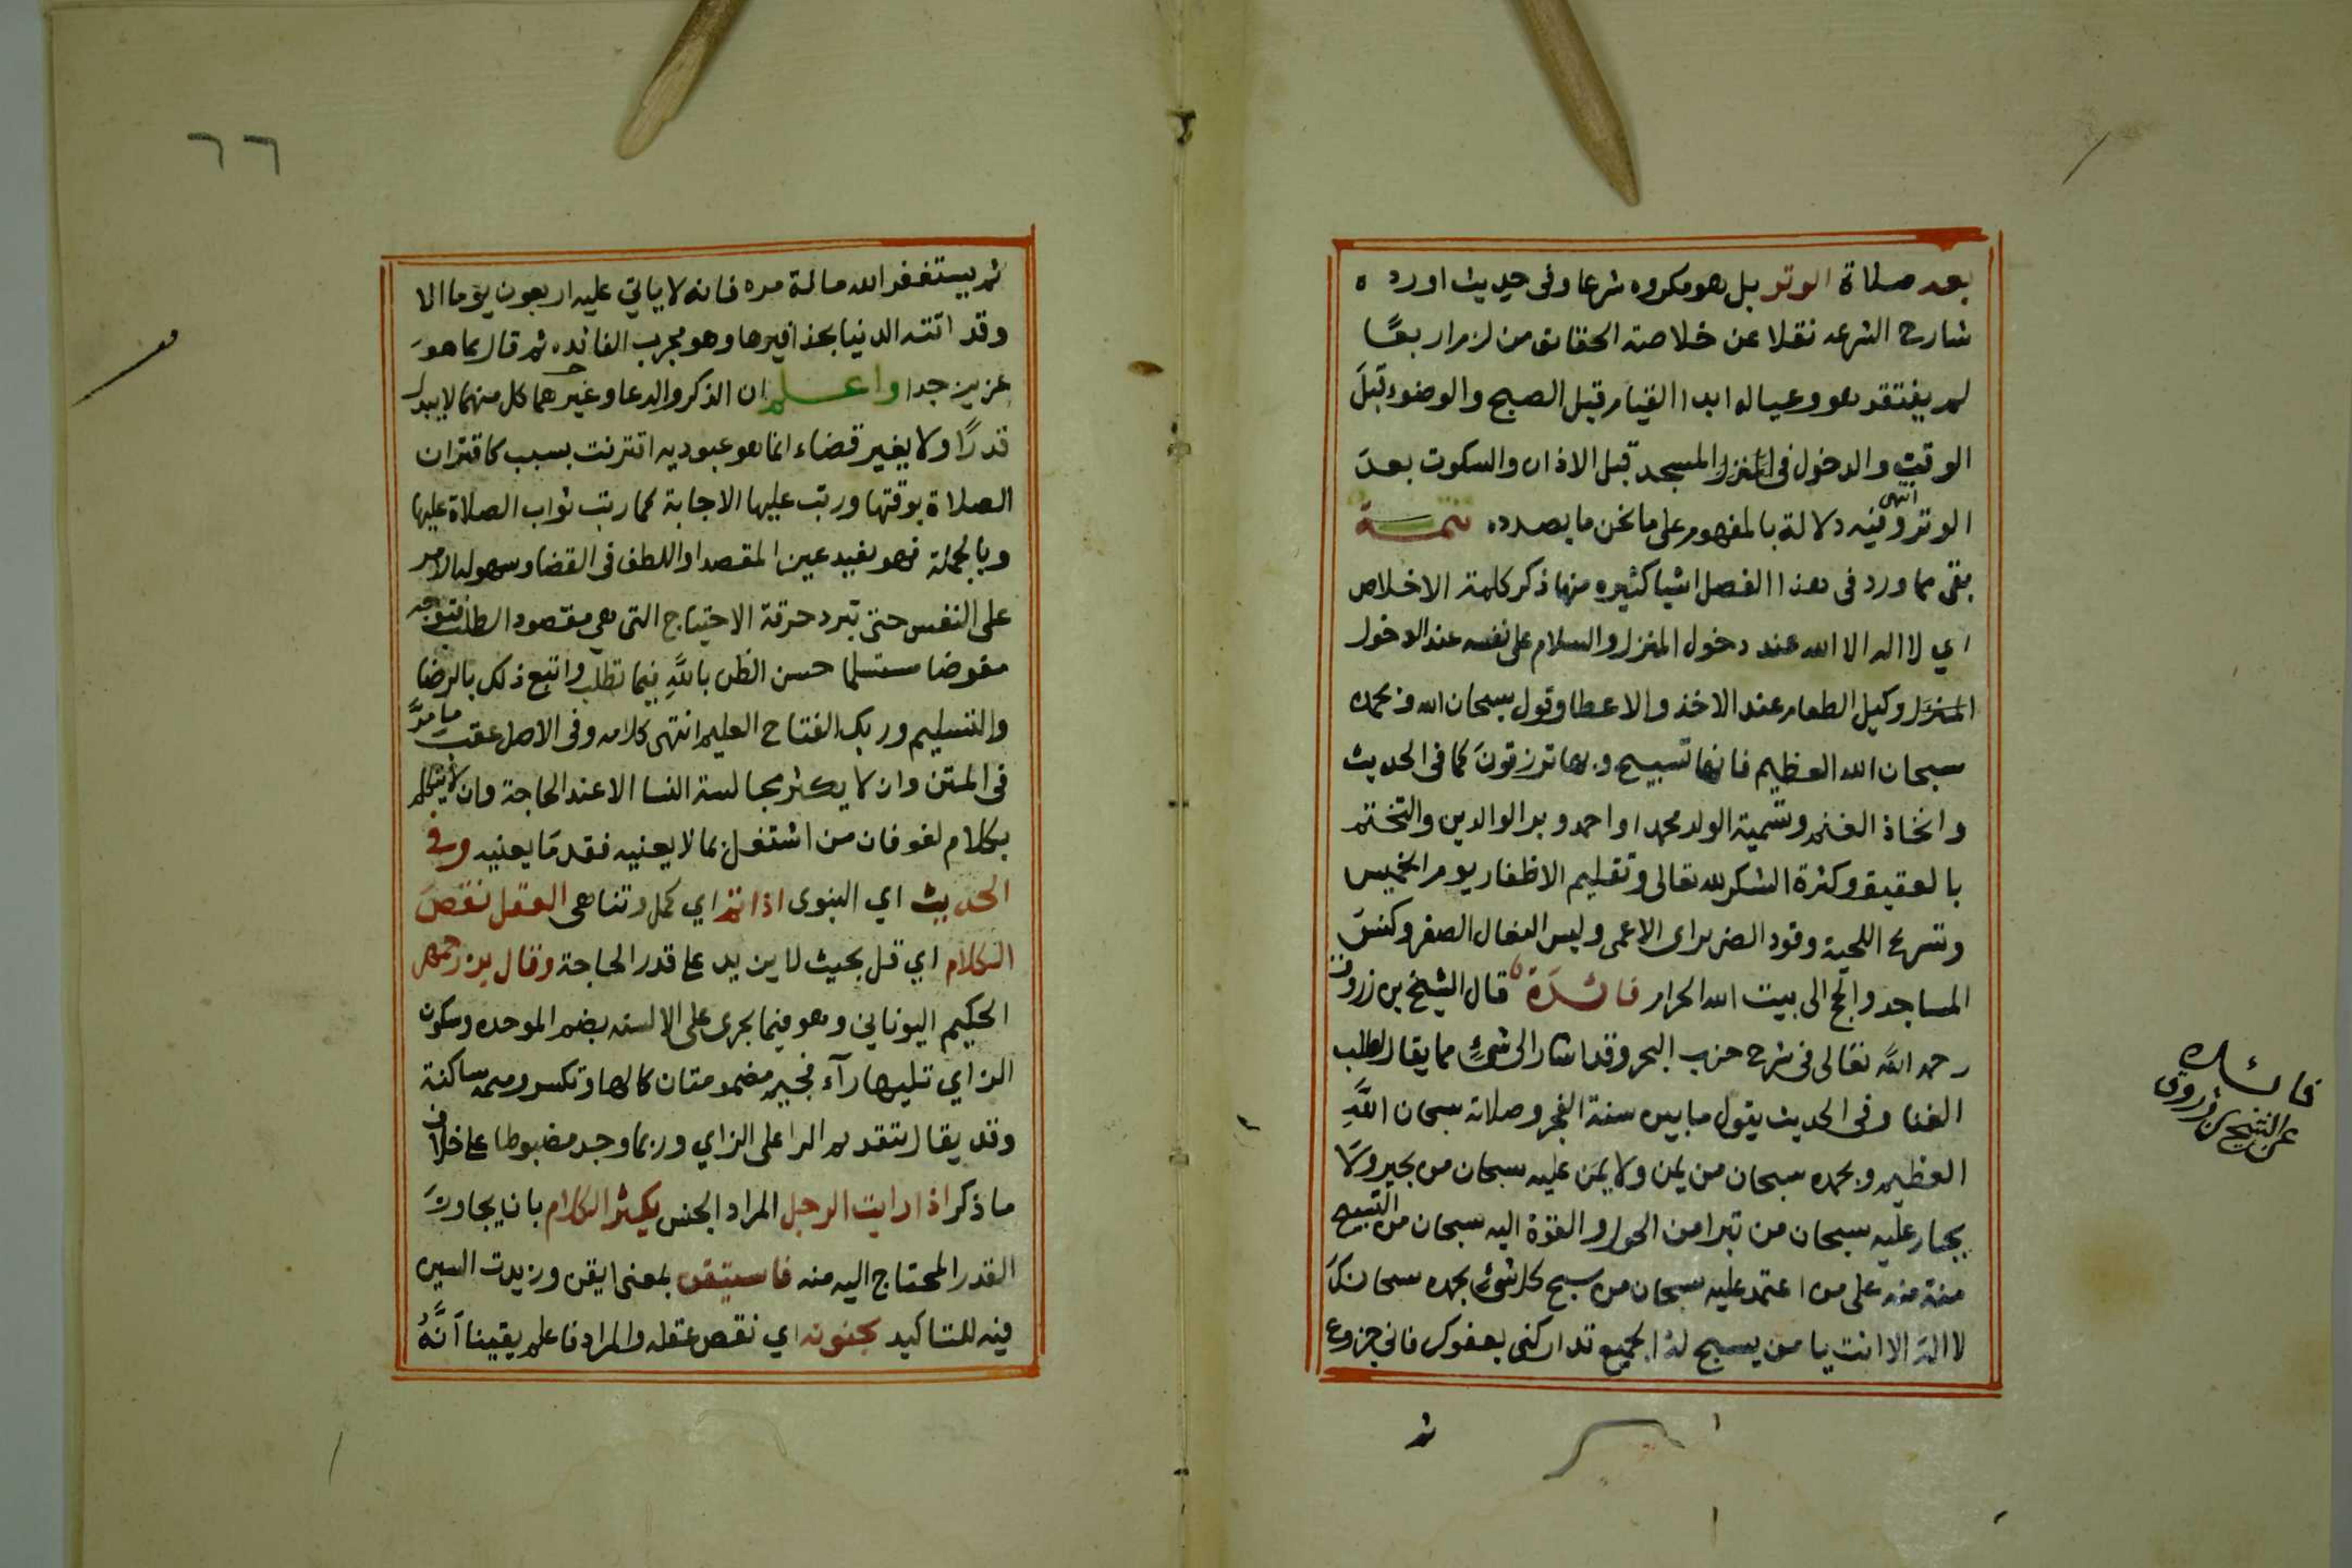 بعد صلاة الوتر بل هو مكروه شرعا وفى حديث اورده
شارح الشرعه نقلا عن خلاصة الحقائق من لزم اربعًا
لم يفتقر هو وعياله ابدا القيام قبل الصبح والوضوء قبل
الوقت والدخول فى المسجد قبل الاذان والسكوت بعد
الوتر انتهى وفيه دلالة بالمفهوم على ما نحن ما بصدده تتمــة
بقى مما ورد فى هذا الفصل اشيا كثيره منها ذكر كلمة الاخلاص
اي لا اله الا الله عند دخول المنزل والسلام على نفسه عند الدخول
المنزل وكيل الطعام عند الاخذ والاعطا وقول سبحان الله وبحمده
سبحان الله العظيم فانها تسبيح وبها ترزقون كما فى الحديث
واتخاذ الغنم وتسمية الولد محمدا او احمد وبر الوالدين والتختم
بالعقيق وكثرة الشكر لله تعالى وتقليم الاظفار يوم الخميس
وتسريح اللحية وقود الضرير اى الاعمى ولبس النعال الصفر وكنس
المساجد والحج الى بيت الله الحرام فائدة قال الشيخ بن زروق
رحمه الله تعالى فى شرح حزب البحر وقد اشار الى شئ مما يقال لطلب
الغنا وفى الحديث يقول ما بين سنة الفجر وصلاته سبحان الله
العظيم وبحمده سبحان من يمن ولا يمن عليه سبحان من يجير ولا
يجار عليه سبحان من تبرا من الحول والقوة اليه سبحان من التسبيح
منة منه على من اعتمد عليه سبحان من سبح كل شئ بحمده سبحانك
لا اله الا انت يا من يسبح له الجميع تداركنى بعفوك فانى جزوع
ثم
فائده
عن الشيخ بن زروق
٦٦
ثم يستغفر الله مائة مره فانه لا ياتي عليه اربعون يوما الا
وقد اتته الدنيا بحذافيرها وهو مجرب الفائده ثم قال بما هو
عزيز جدا واعلم ان الذكر والدعا وغيرهما كل منهما لا يبدل
قدرًا ولا يغير قضاء انما هو عبوديه اقترنت بسبب كاقتران
الصلاة بوقتها ورتب عليها الاجابة كما رتب ثواب الصلاة عليها
وبالجملة فهو يفيد عين المقصد او اللطف فى القضا وسهولة الامر
على النفس حتى تبرد حرقة الاحتياج التى هى مقصود الطلب فتوجه
مفوضا مستسلما حسن الظن بالله فيما تطلب واتبع ذلك بالرضا
والتسليم وربك الفتاح العليم انتهى كلامه وفى الاصل عقب ما مرَّ
فى المتن وان لا يكثر مجالسة النسا الا عند الحاجة وان لا يتكلم
بكلام لغو فان من اشتغل بما لا يعنيه فقد ما يعنيه وفى
الحديث اي النبوى اذا تم اي كمل وتناهى العقل نقص
الكلام اي قل بحيث لا يزيد على قدر الحاجة وقال بزرجمهر
الحكيم اليوناني وهو فيما يجرى على الالسنه بضم الموحده وسكون
الزاي تليها رآء فجيم مضمومتان كالها وتكسر وميمه ساكنة
وقد يقال بتقديم الرا على الزاي وربما وجد مضبوطا على خلاف
ما ذكر اذا رايت الرجل المراد الجنس يكثر الكلام بان يجاوز
القدر المحتاج اليه منه فاستيقن بمعنى ايقن وزيدت السين
فيه للتاكيد بجنونه اي نقص عقله والمراد فاعلم يقينا انَّهُ